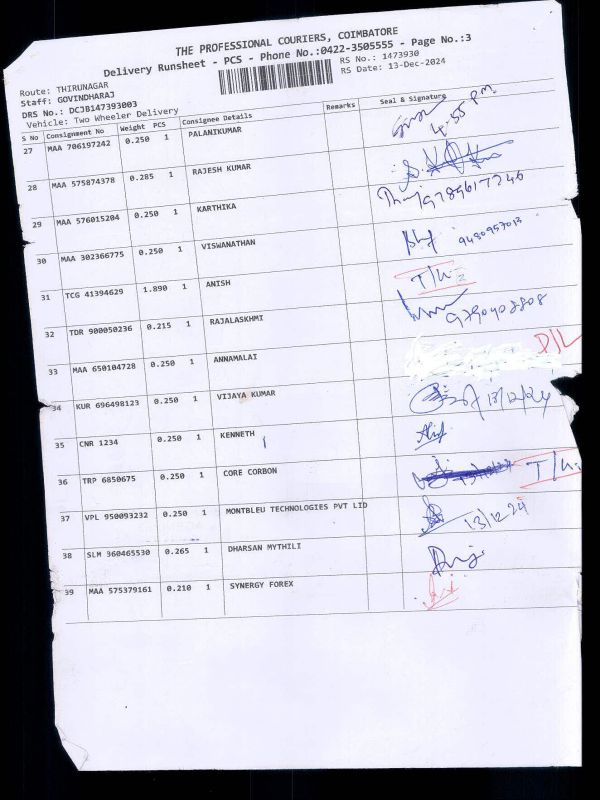 THE PROFESSIONAL COURIERS, COIMBATORE
Delivery Runsheet - PCS - Phone No.:0422-3505555 - Page No.:3
Route: THIRUNAGAR
RS No.: 1473930
Staff: GOVINDHARAJ
RS Date: 13-Dec-2024
DRS No.: DCJB147393003
Vehicle: Two Wheeler Delivery
S No Consignment No Weight PCS Consignee Details Remarks Seal & Signature
27 MAA 706197242 0.250 1 PALANIKUMAR 4.55 p.m.
28 MAA 575874378 0.285 1 RAJESH KUMAR
29 MAA 576015204 0.250 1 KARTHIKA
30 MAA 302366775 0.250 1 VISWANATHAN
31 TCG 41394629 1.890 1 ANISH
32 TDR 900050236 0.215 1 RAJALASKHMI 9790408808
33 MAA 650104728 0.250 1 ANNAMALAI D/L
34 KUR 696498123 0.250 1 VIJAYA KUMAR 13/12/24
35 CNR 1234 0.250 1 KENNETH
36 TRP 6850675 0.250 1 CORE CORBON
37 VPL 950093232 0.250 1 MONTBLEU TECHNOLOGIES PVT LTD 13/12.24
38 SLM 360465530 0.265 1 DHARSAN MYTHILI
39 MAA 575379161 0.210 1 SYNERGY FOREX